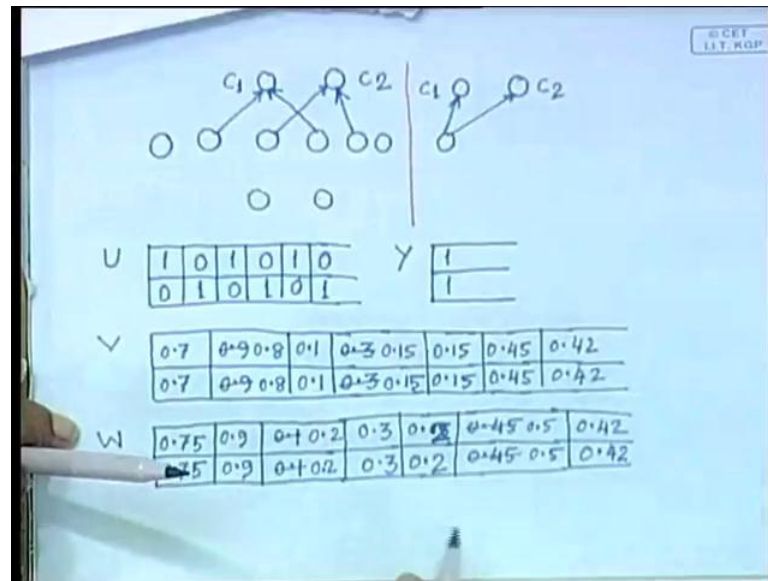 © CET
I.I.T. KGP
C1 C2 C1 C2
U 1 0 1 0 1 0 Y 1
0 1 0 1 0 1 1
V 0.7 0.9 0.8 0.1 0.3 0.15 0.15 0.45 0.42
0.7 0.9 0.8 0.1 0.3 0.15 0.15 0.45 0.42
W 0.75 0.9 0.1 0.2 0.3 0.45 0.5 0.42
0.9 0.1 0.2 0.3 0.2 0.45 0.5 0.42